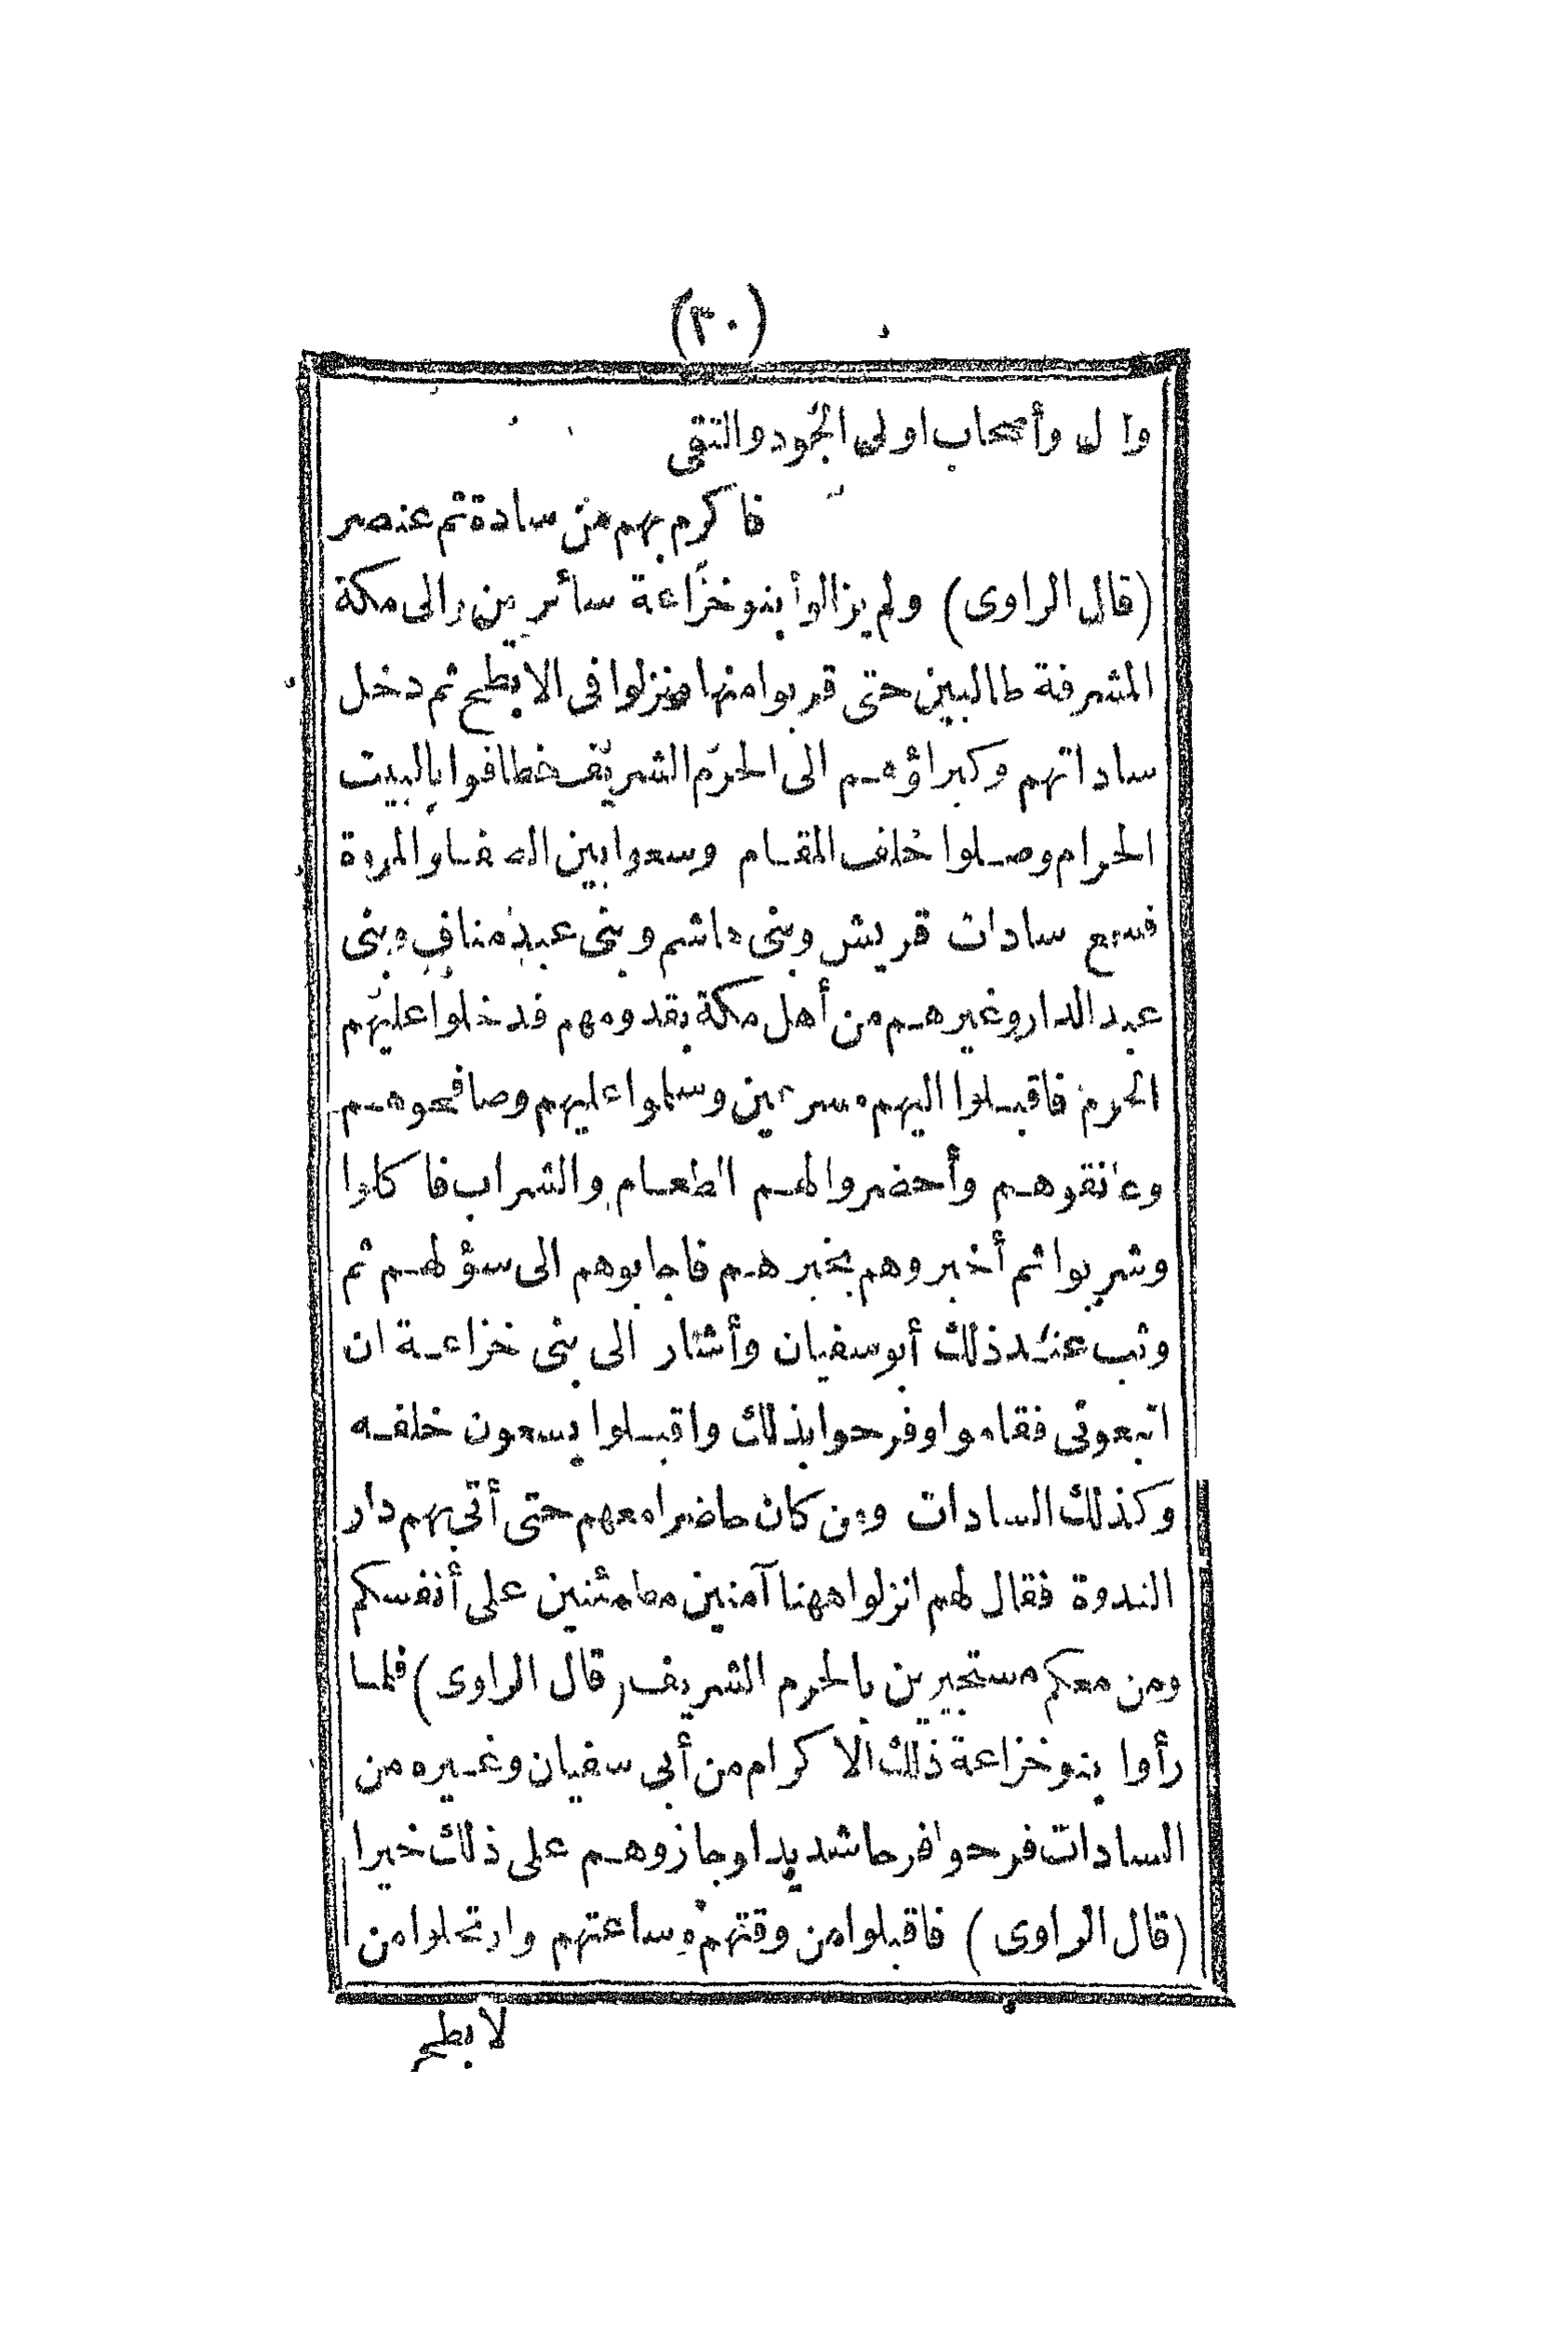 (٣٠)
وآل وأصحاب اولى الجود والتقى
فاكرم بهم من سادة ثم عنصر
(قال الراوى) ولم يزالوا بنو خزاعة سائرين والى مكة
المشرفة طالبين حتى قربوا منها ونزلوا فى الابطح ثم دخل
ساداتهم وكبراؤهم الى الحرم الشريف فطافوا بالبيت
الحرام وصلوا خلف المقام وسعوا بين الصفا والمروة
فسمع سادات قريش وبنى هاشم وبنى عبد مناف وبنى
عبد الدار وغيرهم من أهل مكة بقدومهم فدخلوا عليهم
الحرم فاقبلوا اليهم مسرعين وسلموا عليهم وصافحوهم
وعانقوهم وأحضروا لهم الطعام والشراب فاكلوا
وشربوا ثم أخبروهم بخبرهم فاجابوهم الى سؤلهم ثم
وثب عند ذلك أبو سفيان وأشار الى بنى خزاعة ان
اتبعونى فقاموا وفرحوا بذلك واقبلوا يسعون خلفه
وكذلك السادات ومن كان حاضرا معهم حتى أتى بهم دار
الندوة فقال لهم انزلوا ههنا آمنين مطمئنين على أنفسكم
ومن معكم مستجيرين بالحرم الشريف (قال الراوى) فلما
رأوا بنو خزاعة ذلك الاكرام من أبى سفيان وغيره من
السادات فرحوا فرحا شديدا وجازوهم على ذلك خيرا
(قال الراوى) فاقبلوا من وقتهم وساعتهم وارتحلوا من
لابطح